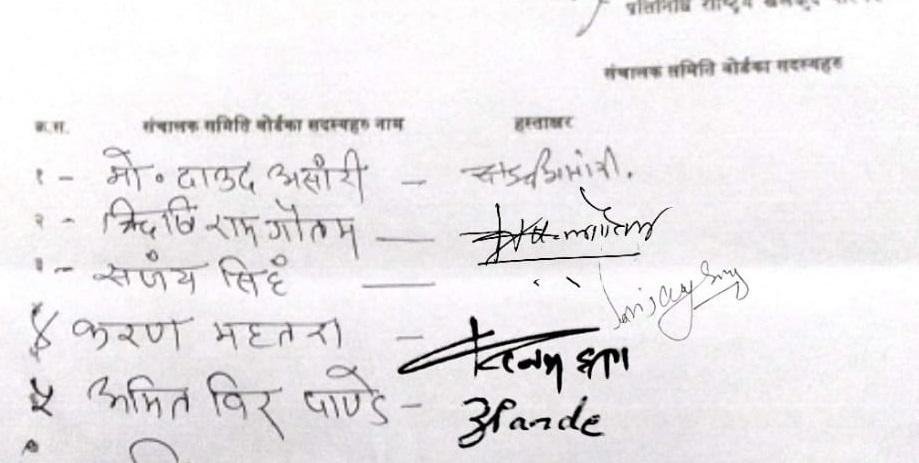 प्रतिनिधि राष्ट्रिय खेलकुद
संचालक समिति बोर्डका सदस्यहरु
क्र.स. संचालक समिति बोर्डका सदस्यहरु नाम हस्ताक्षर
१ - मो. दाउद असाँरी -
२ - ऋिषि राम गौतम —
३ - सजंय सिहं — Sanjay
४ करण महतरा -
५ अमित विर पाण्डे - Pande